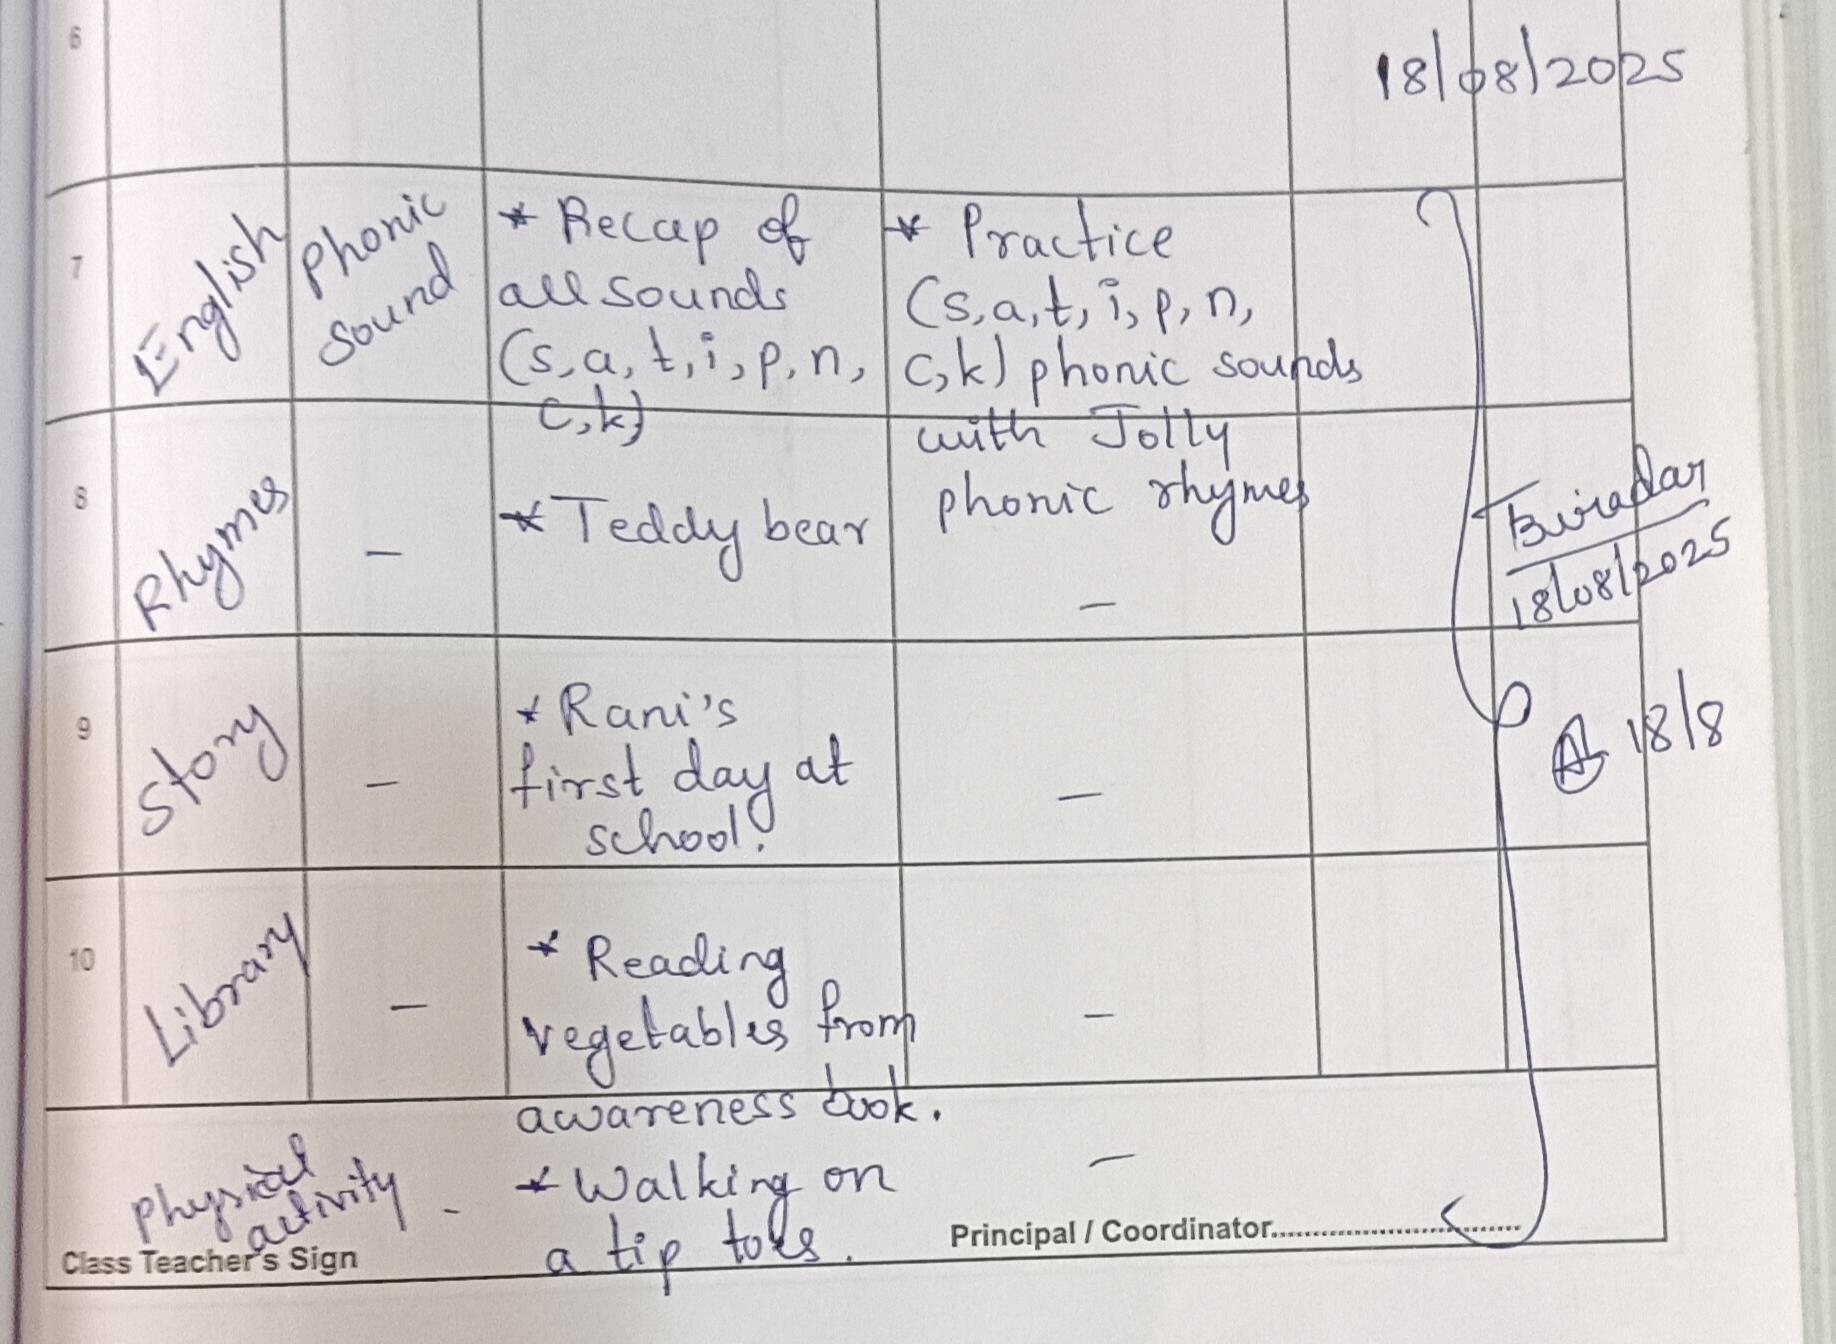 6
18/08/2025
7
English
Phonic
Sound
* Recap of
all sounds
(s, a, t, i, p, n,
c, k)
* Practice
(s, a, t, i, p, n,
c, k) phonic sounds
with Jolly
phonic rhymes
8
Rhymes
-
* Teddy bear
-
Biradar
18/08/2025
9
Story
-
* Rani's
first day at
school.
-
18/8
10
Library
-
* Reading
vegetables from
awareness book.
-
Physical
activity
-
* Walking on
a tip toes.
-
Class Teacher's Sign
Principal / Coordinator..............................